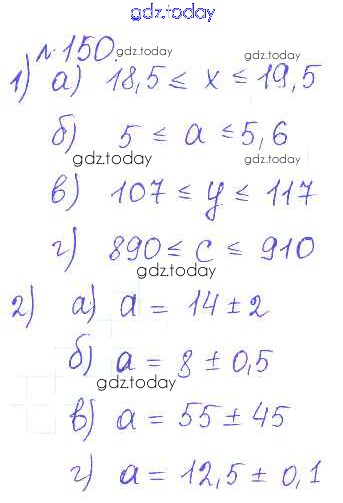 gdz.today
№150. gdz.today
1) а) 18,5 ≤ x ≤ 19,5
gdz.today
б) 5 ≤ a ≤ 5,6
gdz.today
в) 107 ≤ y ≤ 117
г) 890 ≤ c ≤ 910
gdz.today
2) а) a = 14 ± 2
б) a = 8 ± 0,5
gdz.today
в) a = 55 ± 45
г) a = 12,5 ± 0,1